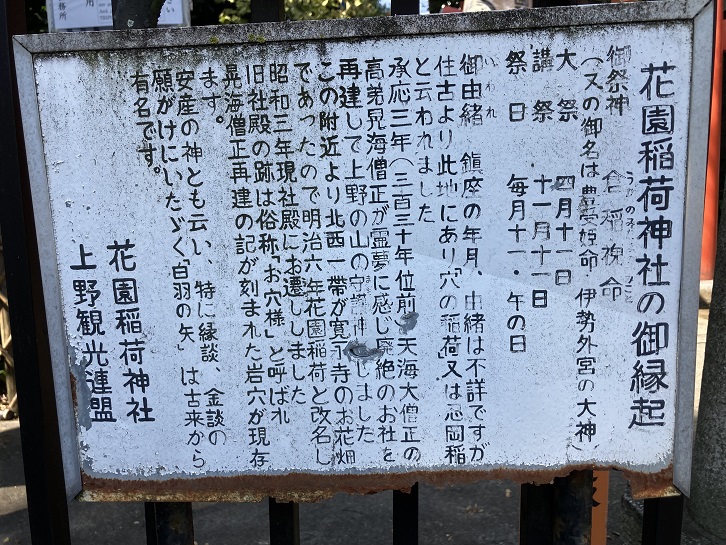 花園稲荷神社の御縁起
御祭神 倉稲魂命
(又の御名は豊受姫命 伊勢外宮の大神)
大祭 四月十一日
講祭 十一月十一日
祭日 毎月十一・午の日
いわれ
御由緒 鎮座の年月、由緒は不詳ですが
往古より此地にあり「穴の稲荷又は忍岡稲
と云われました
承応三年(三百三十年位前)天海大僧正の
高弟晃海僧正が霊夢に感じ廃絶のお社を
再建して上野の山の守護神 しました
この附近より北西一帯が寛永寺のお花畑
であったので明治六年花園稲荷と改名し
昭和三年現社殿にお遷ししました
旧社殿の跡は俗称「お穴様」と呼ばれ
晃海僧正再建の記が刻まれた岩穴が現存
ます。
安産の神とも云い、特に縁談、金談の
願がけにいたゞく「白羽の矢」は古来から
有名です。
花園稲荷神社
上野観光連盟